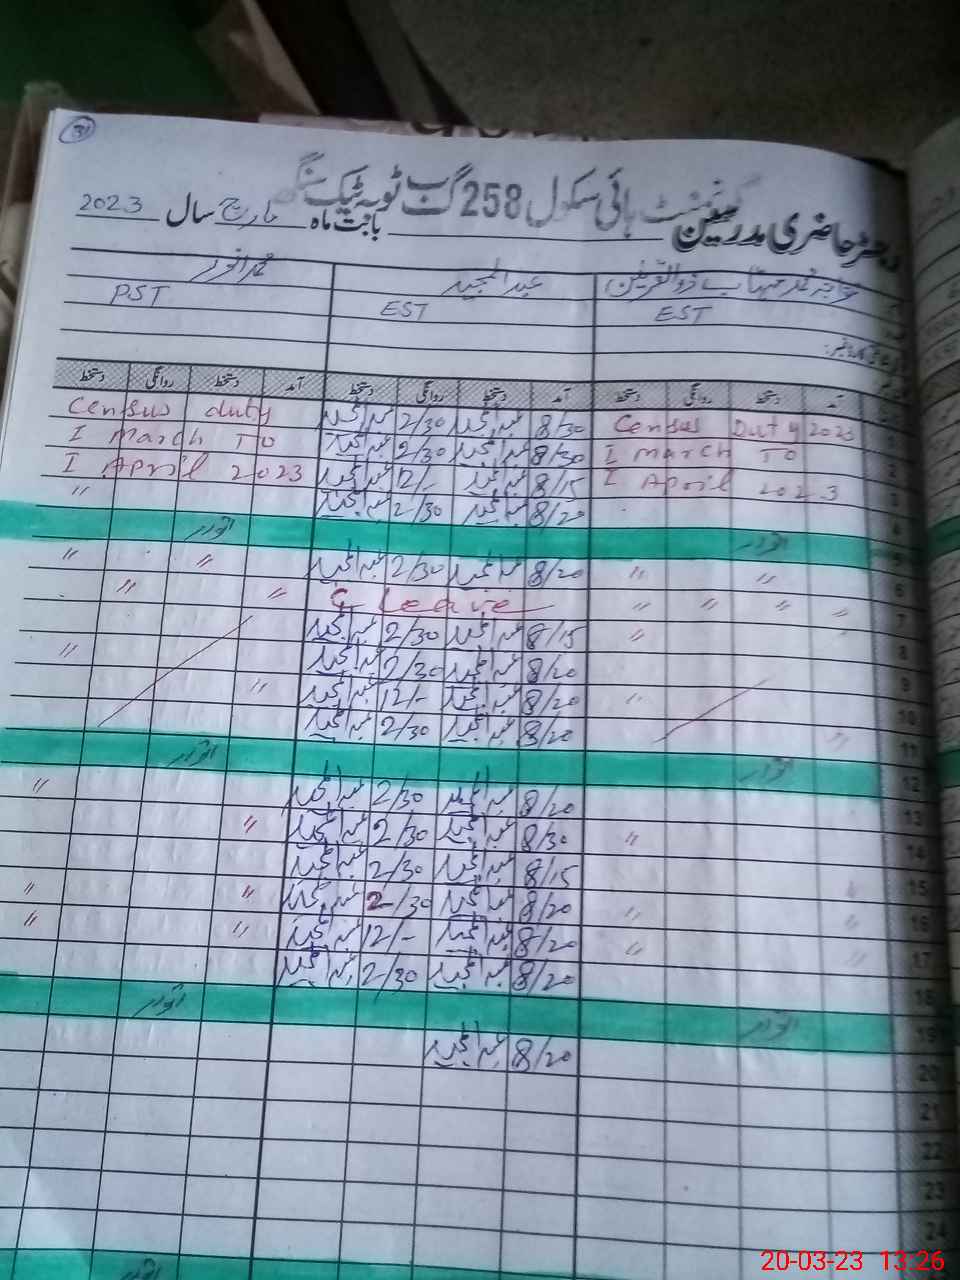 31
گورنمنٹ ہائی سکول 258 گ ب ٹوبہ ٹیک سنگھ
رجسٹر حاضری مدرسین بابت ماہ مارچ سال 2023
عبدالمجید محمد انور
EST EST PST
آمد دستخط روانگی دستخط آمد دستخط روانگی دستخط آمد دستخط روانگی دستخط
1 Census Duty 2023 8/30 عبدالمجید 2/30 عبدالمجید Census duty
2 I march To 8/30 عبدالمجید 2/30 عبدالمجید I March To
3 I April 2023 8/15 عبدالمجید 12/- عبدالمجید I April 2023
4 8/20 عبدالمجید 2/30 عبدالمجید "
5 اتوار اتوار
6 " " 8/20 عبدالمجید 2/30 عبدالمجید " "
7 " " " " C leave " "
8 " 8/15 عبدالمجید 2/30 عبدالمجید
9 8/20 عبدالمجید 2/30 عبدالمجید "
10 " 8/20 عبدالمجید 12/- عبدالمجید "
11 " 8/20 عبدالمجید 2/30 عبدالمجید
12 اتوار اتوار
13 8/20 عبدالمجید 2/30 عبدالمجید "
14 " 8/30 عبدالمجید 2/30 عبدالمجید "
15 " 8/15 عبدالمجید 2/30 عبدالمجید
16 " " 8/20 عبدالمجید 2/30 عبدالمجید " "
17 " " 8/20 عبدالمجید 12/- عبدالمجید " "
18 8/20 عبدالمجید 2/30 عبدالمجید
19 اتوار اتوار
20 8/20 عبدالمجید
21
22
23
24
اتوار
20-03-23 13:26